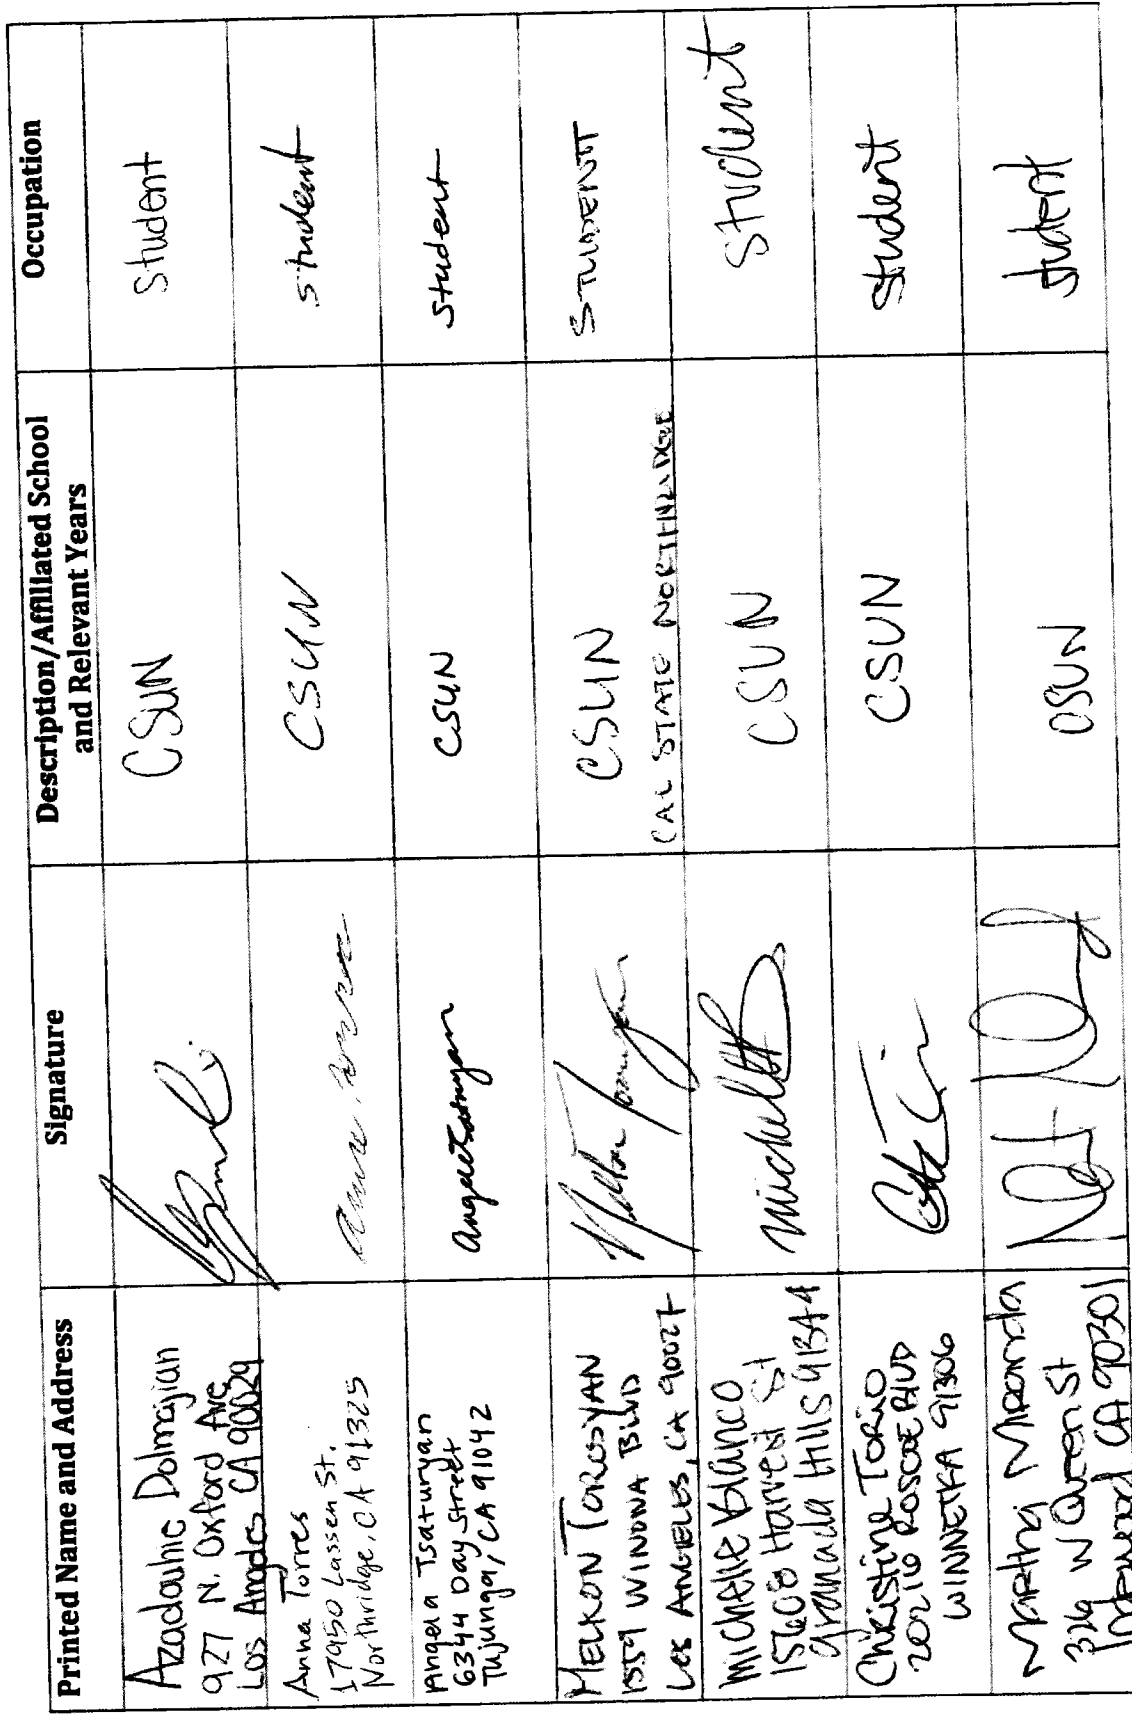 Printed Name and Address
Signature
Description/Affiliated School
and Relevant Years
Occupation
Azadouhie Dolmajian
927 N. Oxford Ave
Los Angeles CA 90029
CSUN
Student
Anna Torres
17950 Lassen St.
Northridge, CA 91325
CSUN
student
Angela Tsaturyan
6344 Day Street
Tujunga, CA 91042
CSUN
student
MELKON TOROSYAN
1559 WINONA BLVD
LOS ANGELES, CA 90027
CSUN
CAL STATE NORTHRIDGE
STUDENT
Michelle Blanco
15608 Harvest St
Granada Hills 91344
CSUN
Student
Christine TORIO
20210 ROSCOE BLVD
WINNETKA 91306
CSUN
student
Martha Miranda
326 W Queen St
CA 90301
CSUN
student